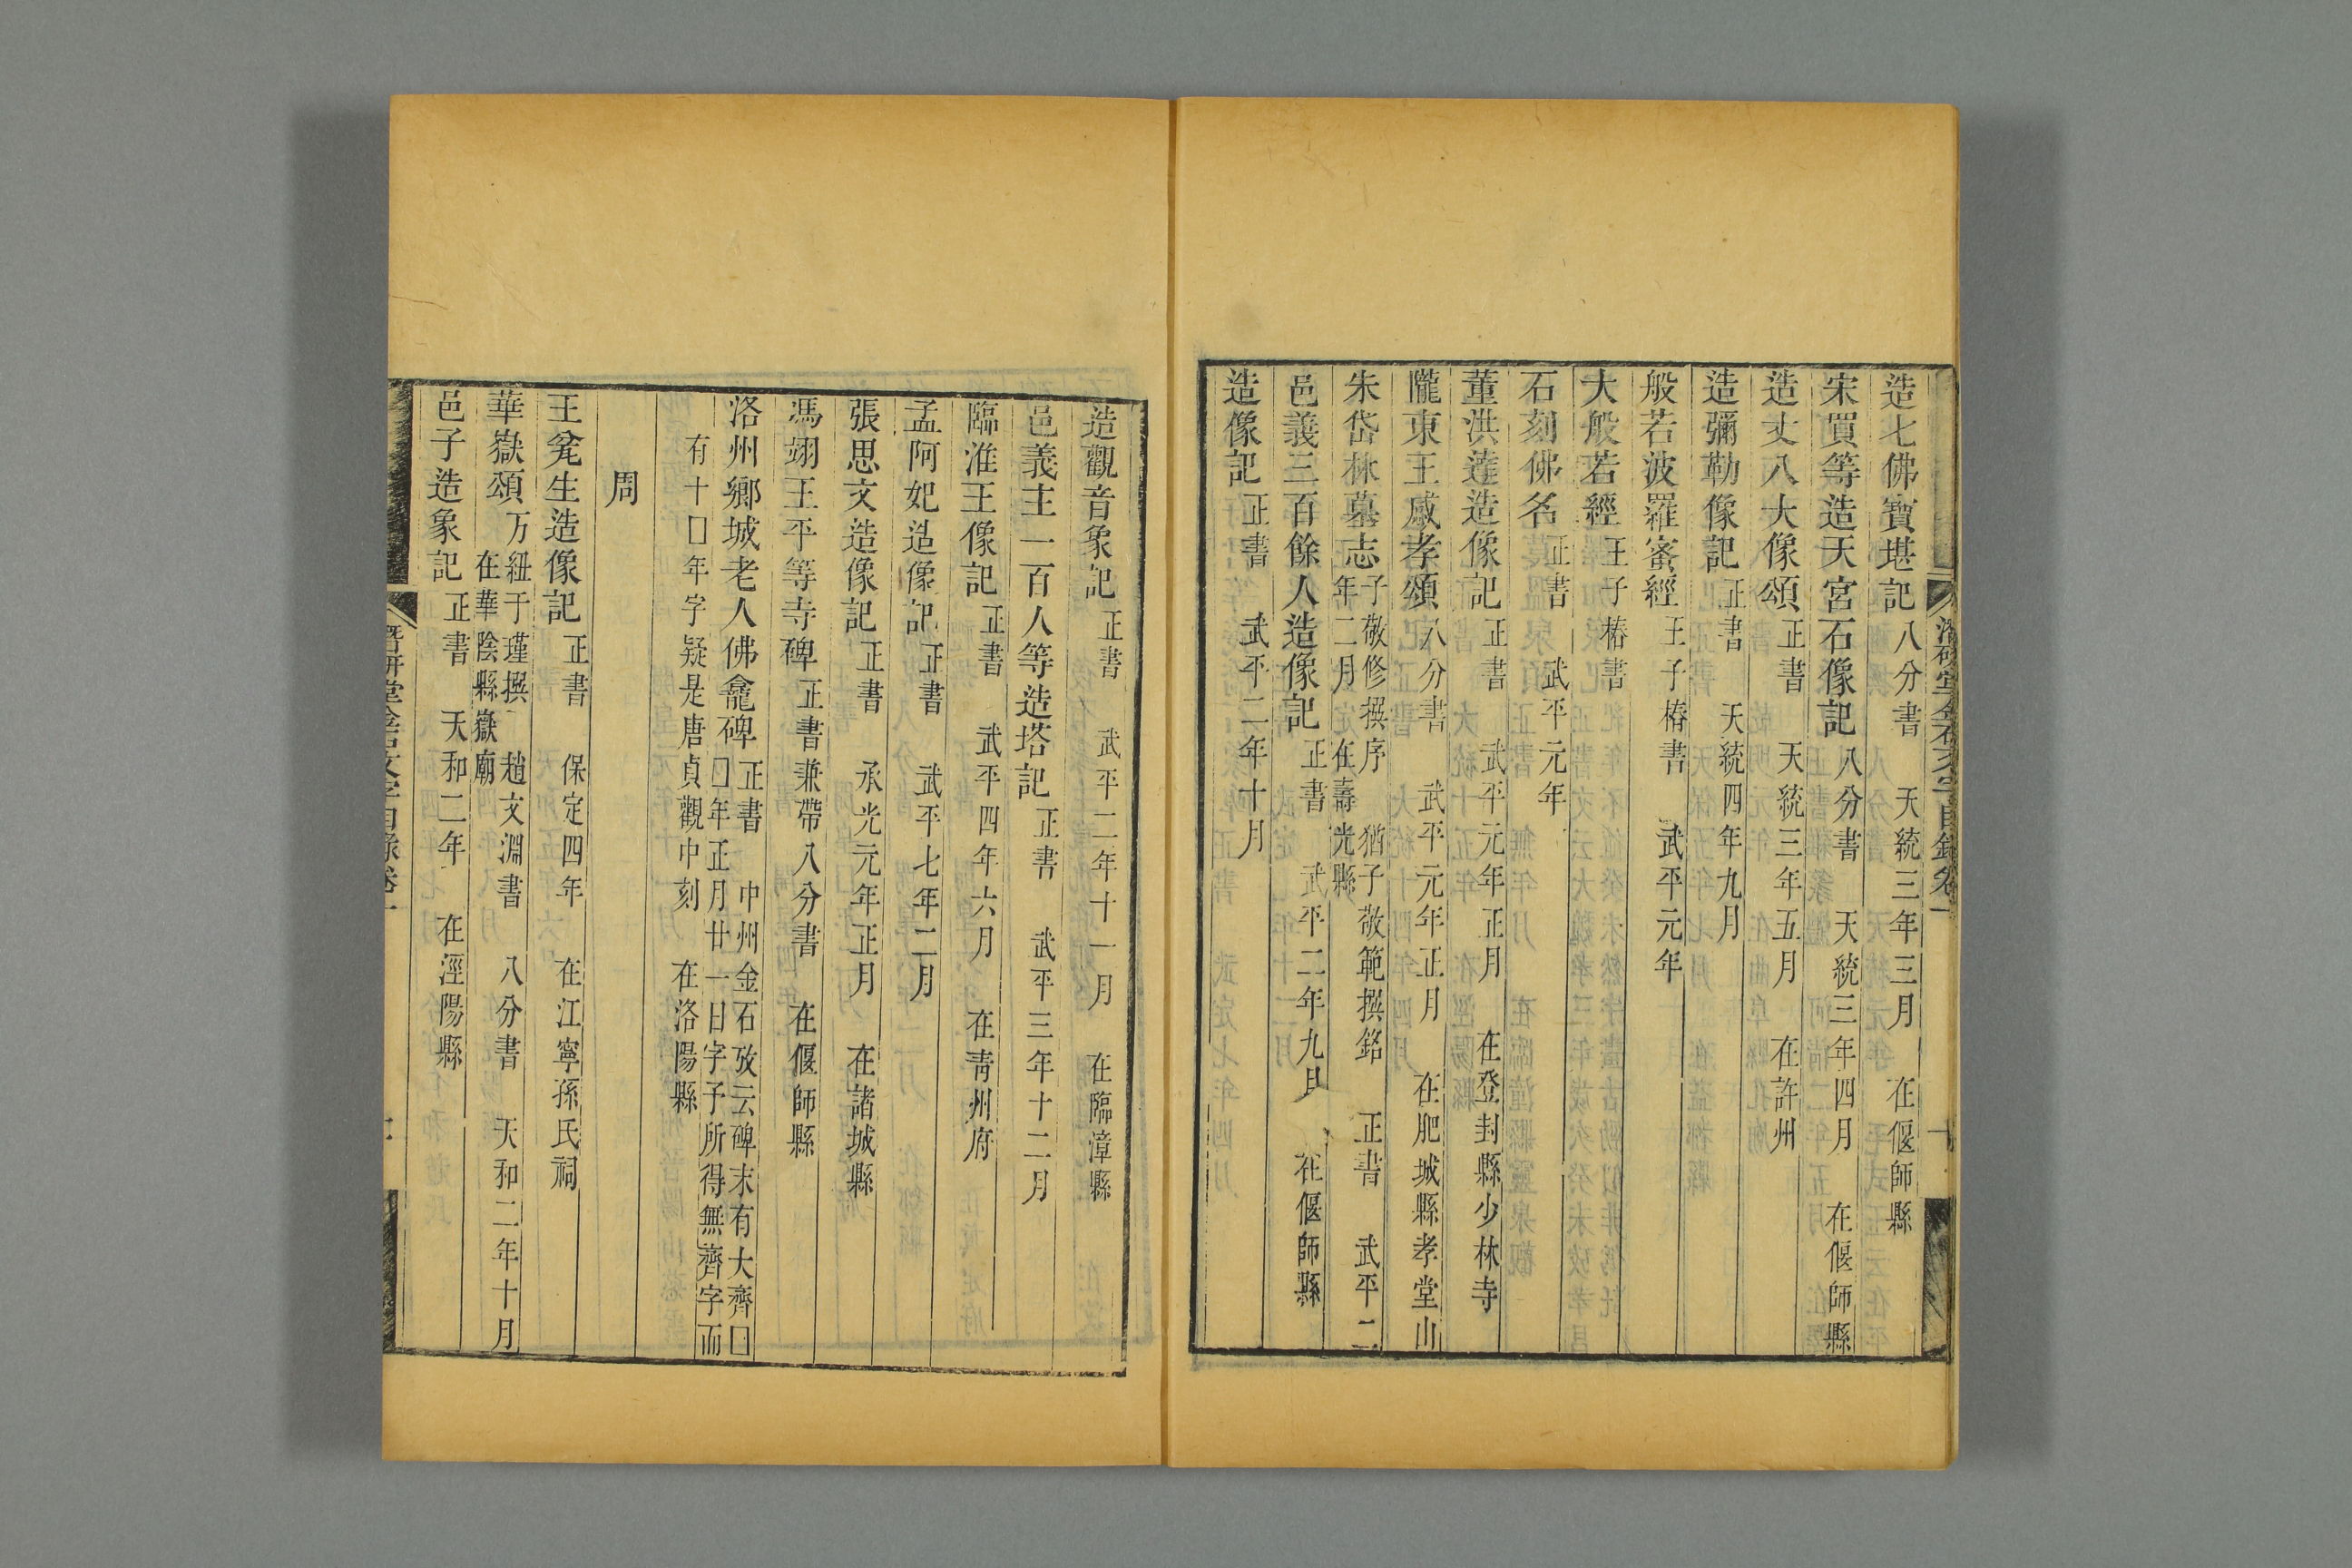 造七佛寶堪記 八分書 天統三年三月 在偃師縣
宋買等造天宮石像記 八分書 天統三年四月 在偃師縣
造丈八大像頌 正書 天統三年五月 在許州
造彌勒像記 正書 天統四年九月
般若波羅蜜經 王子椿書 武平元年
大般若經 王子椿書
石刻佛名 正書 武平元年
董洪達造像記 正書 武平元年正月 在登封縣少林寺
隴東王感孝頌 八分書 武平元年正月 在肥城縣孝堂山
朱岱林墓志 子敬修撰序 猶子敬範撰銘 正書 武平二
年二月 在壽光縣
邑義三百餘人造像記 正書 武平二年九月 在偃師縣
造像記 正書 武平二年十月
造觀音象記 正書 武平二年十一月 在臨漳縣
邑義主一百人等造塔記 正書 武平三年十二月
臨淮王像記 正書 武平四年六月 在青州府
孟阿妃造像記 正書 武平七年二月
張思文造像記 正書 承光元年正月 在諸城縣
馮翊王平等寺碑 正書兼帶八分書 在偃師縣
洛州鄉城老人佛龕碑 正書 中州金石攷云碑末有大齊囗
囗年正月廿一日字予所得無齊字而
有十囗年字疑是唐貞觀中刻 在洛陽縣
周
王㝹生造像記 正書 保定四年 在江寧孫氏祠
華嶽頌 万紐于瑾撰 趙文淵書 八分書 天和二年十月
在華陰縣嶽廟
邑子造象記 正書 天和二年 在涇陽縣
潛研堂金石文字目錄卷一